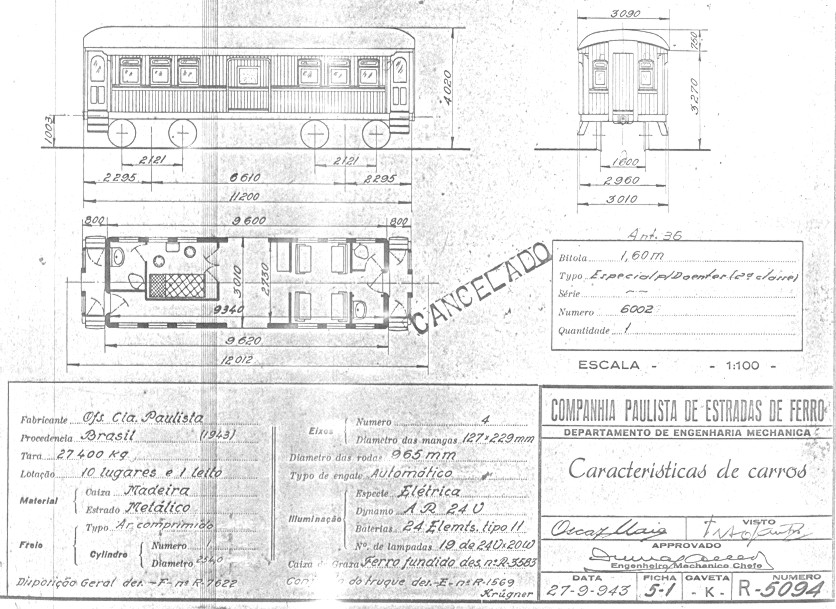 3090
750
4020
3270
1003
2121
2121
1600
2295
6610
2295
2960
11200
3010
800
9.600
800
3010
2730
9340
9620
12012
CANCELADO
Ant. 36
Bitola 1,60m
Typo Especial p/Doentes (2ª classe)
Série ~~
Numero 6002
Quantidade 1
ESCALA - - 1:100 -
Fabricante Ofs. Cia. Paulista
Procedencia Brasil (1943)
Tara 27400 kg
Lotação 10 lugares e 1 leito
Material Caixa Madeira
Estrado Metálico
Freio Typo Ar comprimido
Cylindro Numero
Diametro 254,0
Disposição Geral des. -F- nº R-7622
Eixos Numero 4
Diametro das mangas 127x229mm
Diametro das rodas 965 mm
Typo de engate Automático
Illuminação Especie Elétrica
Dynamo A R 24 V
Baterias 24 Elemts. tipo 11
Nº. de lampadas 19 de 24Vx20W
Caixa de Graxa Ferro fundido des nº R-3583
do truque des.-E- nº R-1569
Krügner
COMPANHIA PAULISTA DE ESTRADAS DE FERRO
DEPARTAMENTO DE ENGENHARIA MECHANICA
Caracteristicas de carros
Oscar Maia
VISTO
APPROVADO
Engenheiro Mechanico Chefe
DATA 27-9-943
FICHA 5-1
GAVETA - K -
NUMERO R-5094